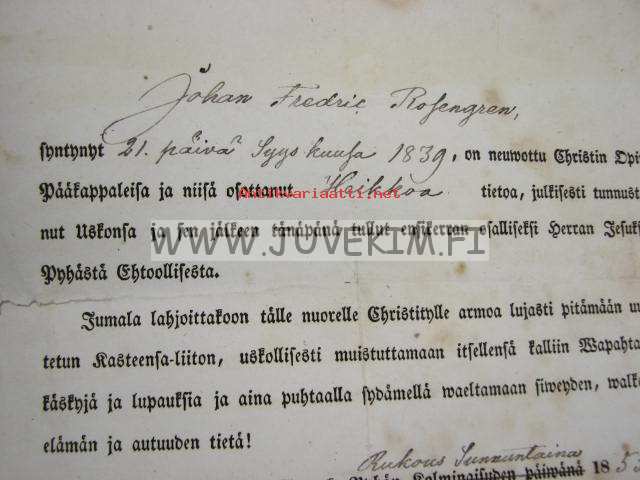 Johan Fredric Rosengren,
syntynyt 21. päivä Syyskuusa 1839, on neuwottu Christin Opi
Pääkappaleisa ja niisä osottanut Heikkoa tietoa, julkisesti tunnust
Antikvariaatti.net
nut Uskonsa ja sen jälkeen tänäpänä tullut ensikerran osalliseksi Herran Jesuks
WWW.JOVEKIM.FI
Pyhästä Ehtoollisesta.
Jumala lahjoittakoon tälle nuorelle Christitylle armoa lujasti pitämään uu
tetun Kasteensa-liiton, uskollisesti muistuttamaan itsellensä kalliin Wapahta
käskyjä ja lupauksia ja aina puhtaalla sydämellä waeltamaan siweyden, walke
elämän ja autuuden tietä!
Rukous Sunnuntaina
päiwänä 185